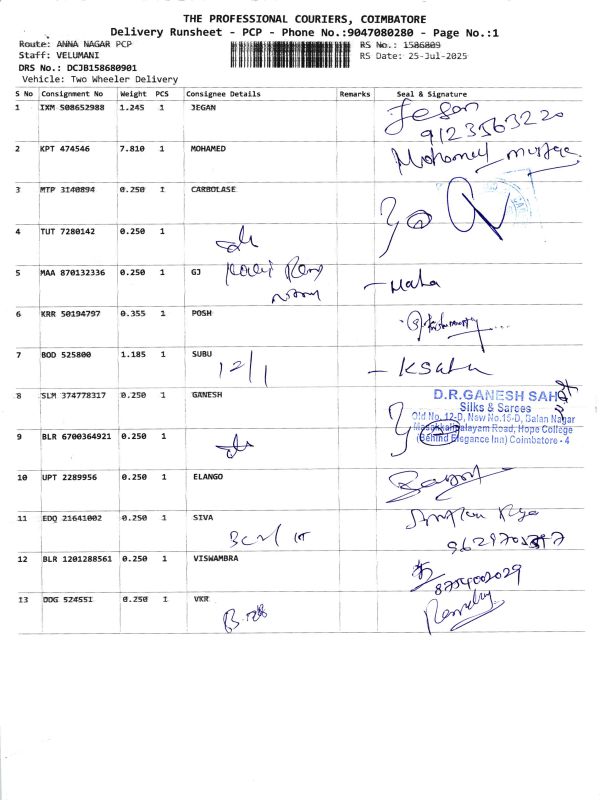 THE PROFESSIONAL COURIERS, COIMBATORE
Delivery Runsheet - PCP - Phone No.:9047080280 - Page No.:1
Route: ANNA NAGAR PCP
RS No.: 1586809
Staff: VELUMANI
RS Date: 25-Jul-2025
DRS No.: DCJB158680901
Vehicle: Two Wheeler Delivery
S No Consignment No Weight PCS Consignee Details Remarks Seal & Signature
1 IXM 508652988 1.245 1 JEGAN Jegan
9123563220
2 KPT 474546 7.810 1 MOHAMED Mohamed
3 MTP 3140894 0.250 1 CARBOLASE
4 TUT 7280142 0.250 1
5 MAA 870132336 0.250 1 GJ Maha
6 KRR 50194797 0.355 1 POSH
7 BOD 525800 1.185 1 SUBU
12/1
8 SLM 374778317 0.250 1 GANESH
D.R.GANESH SAH
Silks & Sarees
Old No. 12-D, New No.15-D, Balan Nagar
Masakkalipalayam Road, Hope College
(Behind Elegance Inn) Coimbatore - 4
9 BLR 6700364921 0.250 1
10 UPT 2289956 0.250 1 ELANGO
11 EDQ 21641002 0.250 1 SIVA
12 BLR 1201288561 0.250 1 VISWAMBRA
13 ODG 524551 0.250 1 VKR